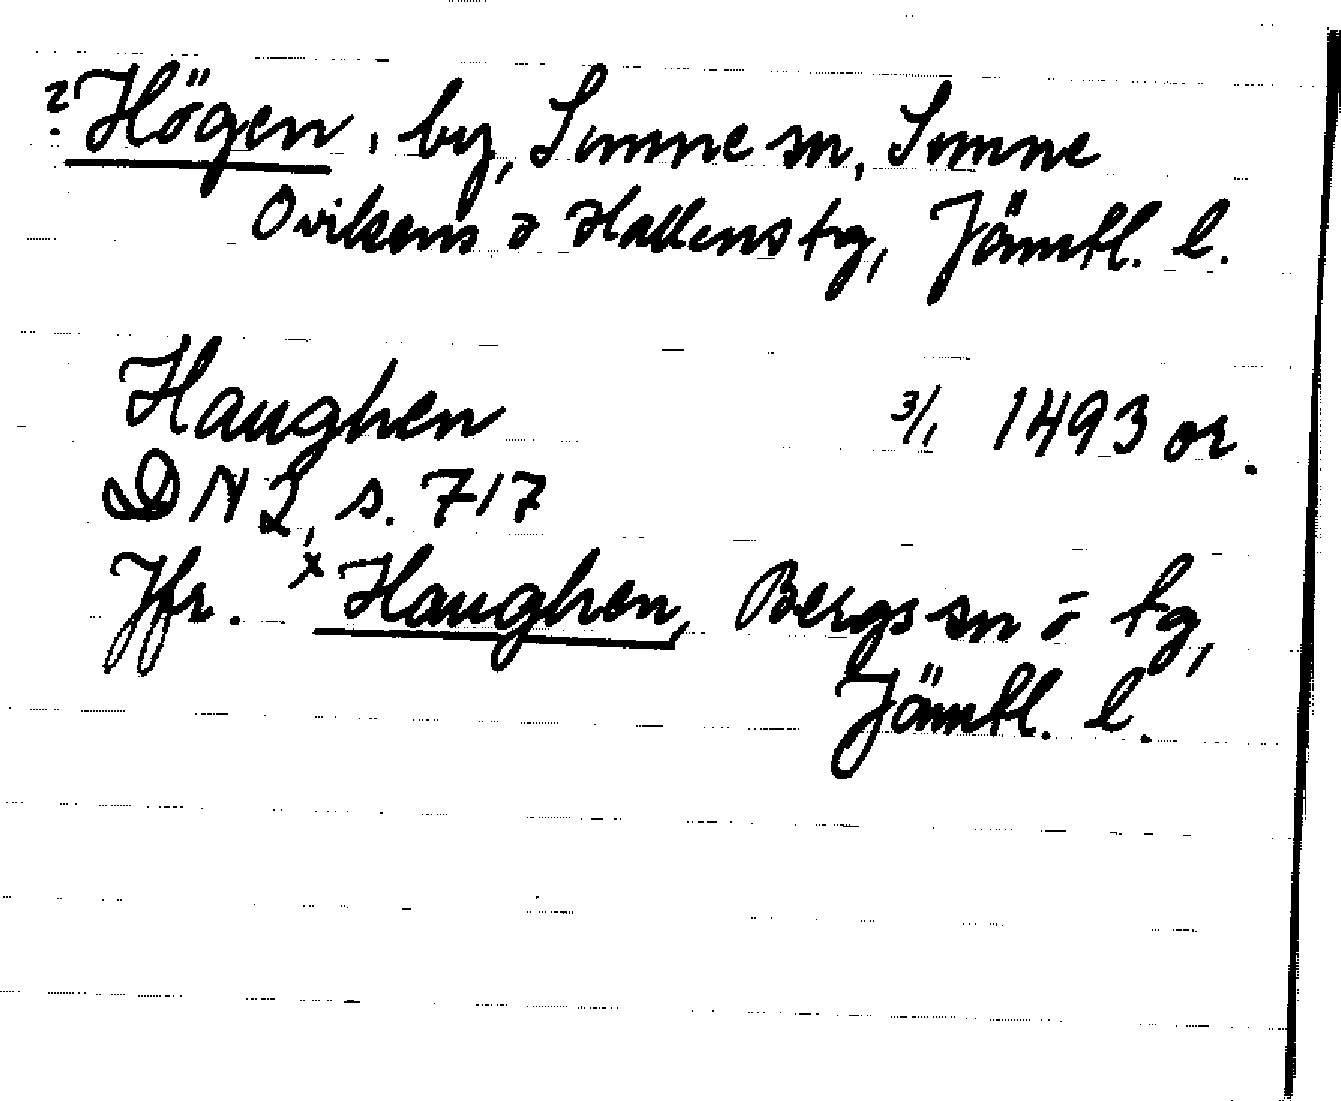 ? Högen, by, Sunne sn, Sunne
Ovikens o Hallens tg, Jämtl. l.
Haughen 3/1 1493 or.
DN I, s. 717
Jfr. x Haughen, Bergs sn o tg,
Jämtl. l.